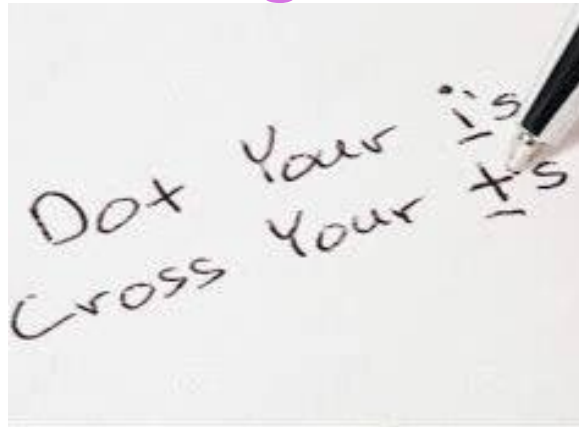 Dot Your i's
Cross Your t's